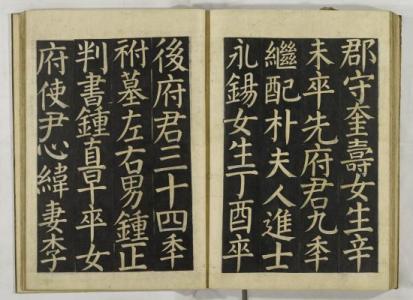 郡守奎壽女生辛
未卒先府君九秊
繼配朴夫人進士
永錫女生丁酉卒
後府君三十四秊
祔墓左右男鍾正
判書鍾直早卒女
府使尹心緯妻李